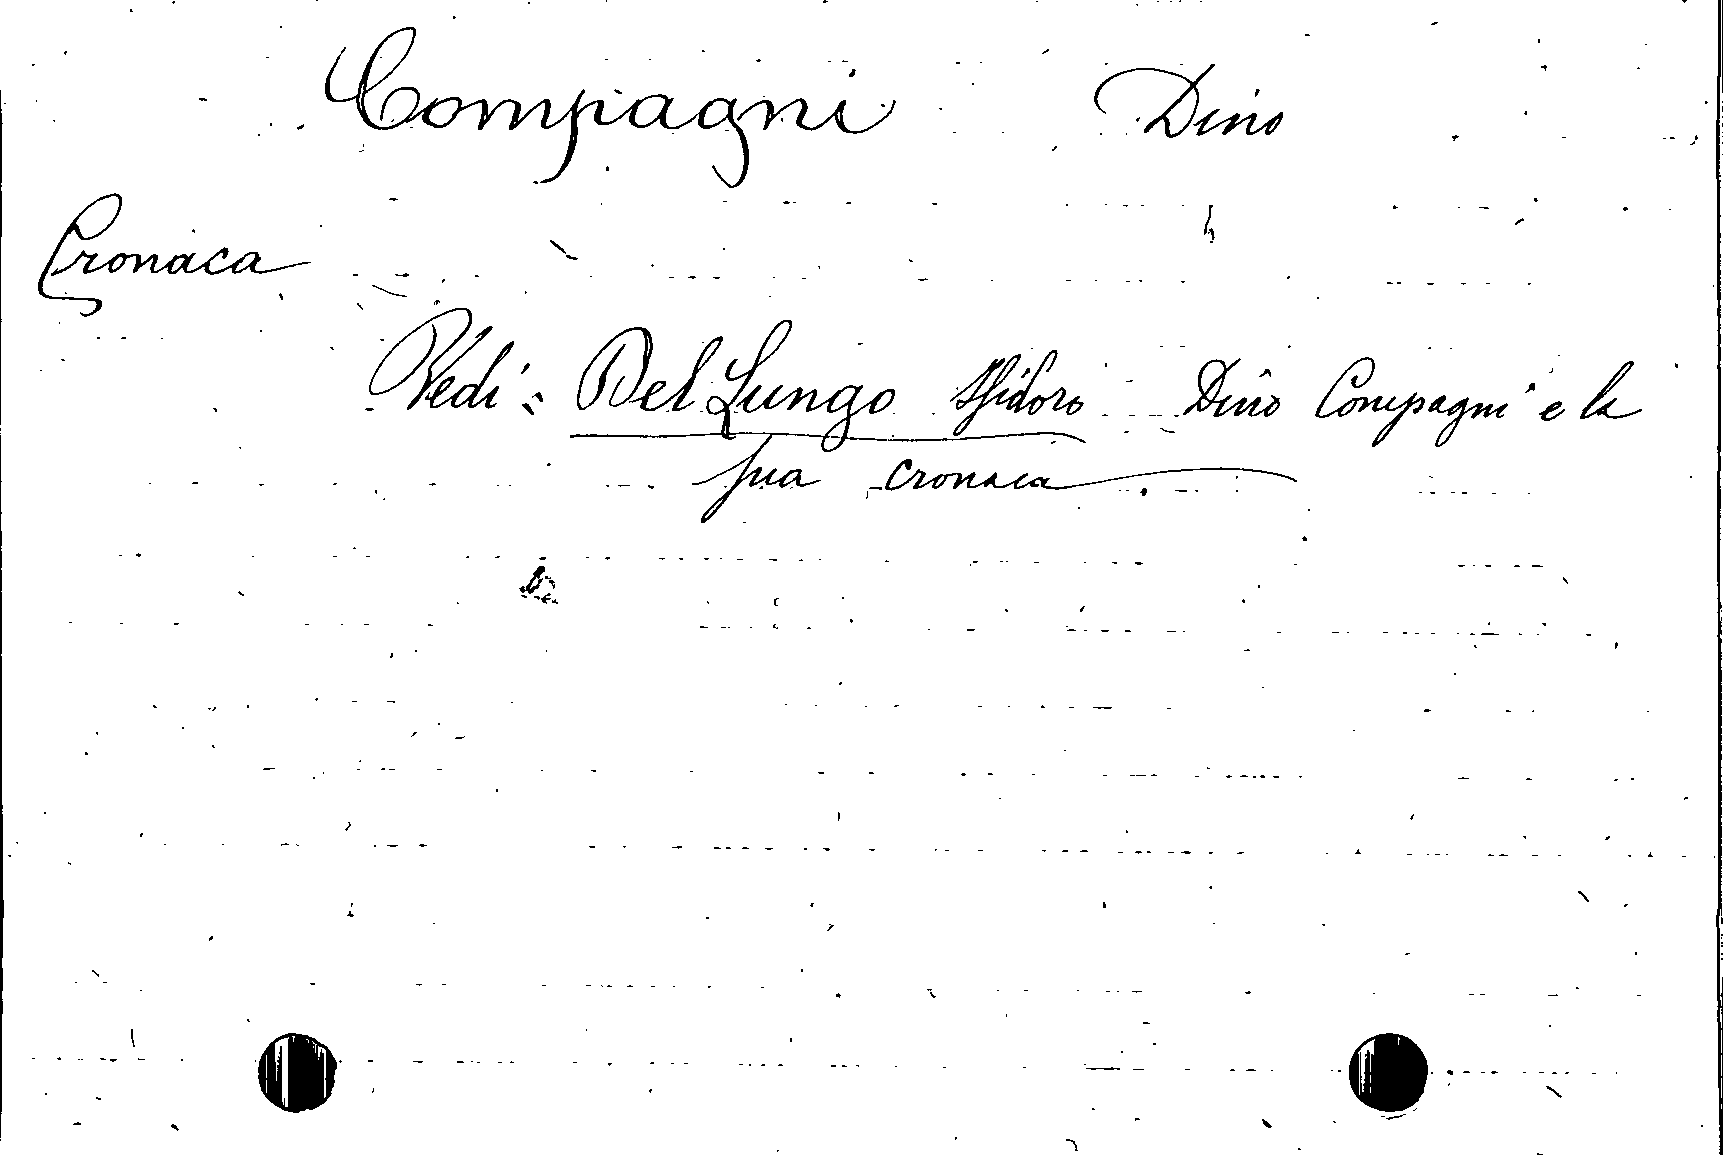 Compagni Dino
Cronaca
Vedi = Del Lungo Isidoro Dino Compagni e la
sua cronaca